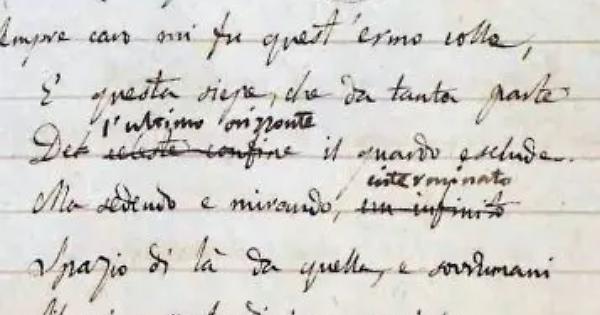 empre caro mi fu quest'ermo colle,
E questa siepe, che da tanta parte
l'ultimo orizzonte
Del celeste confine il guardo esclude.
interminato
Ma sedendo e mirando, un infinito
Spazio di là da quella, e sovrumani